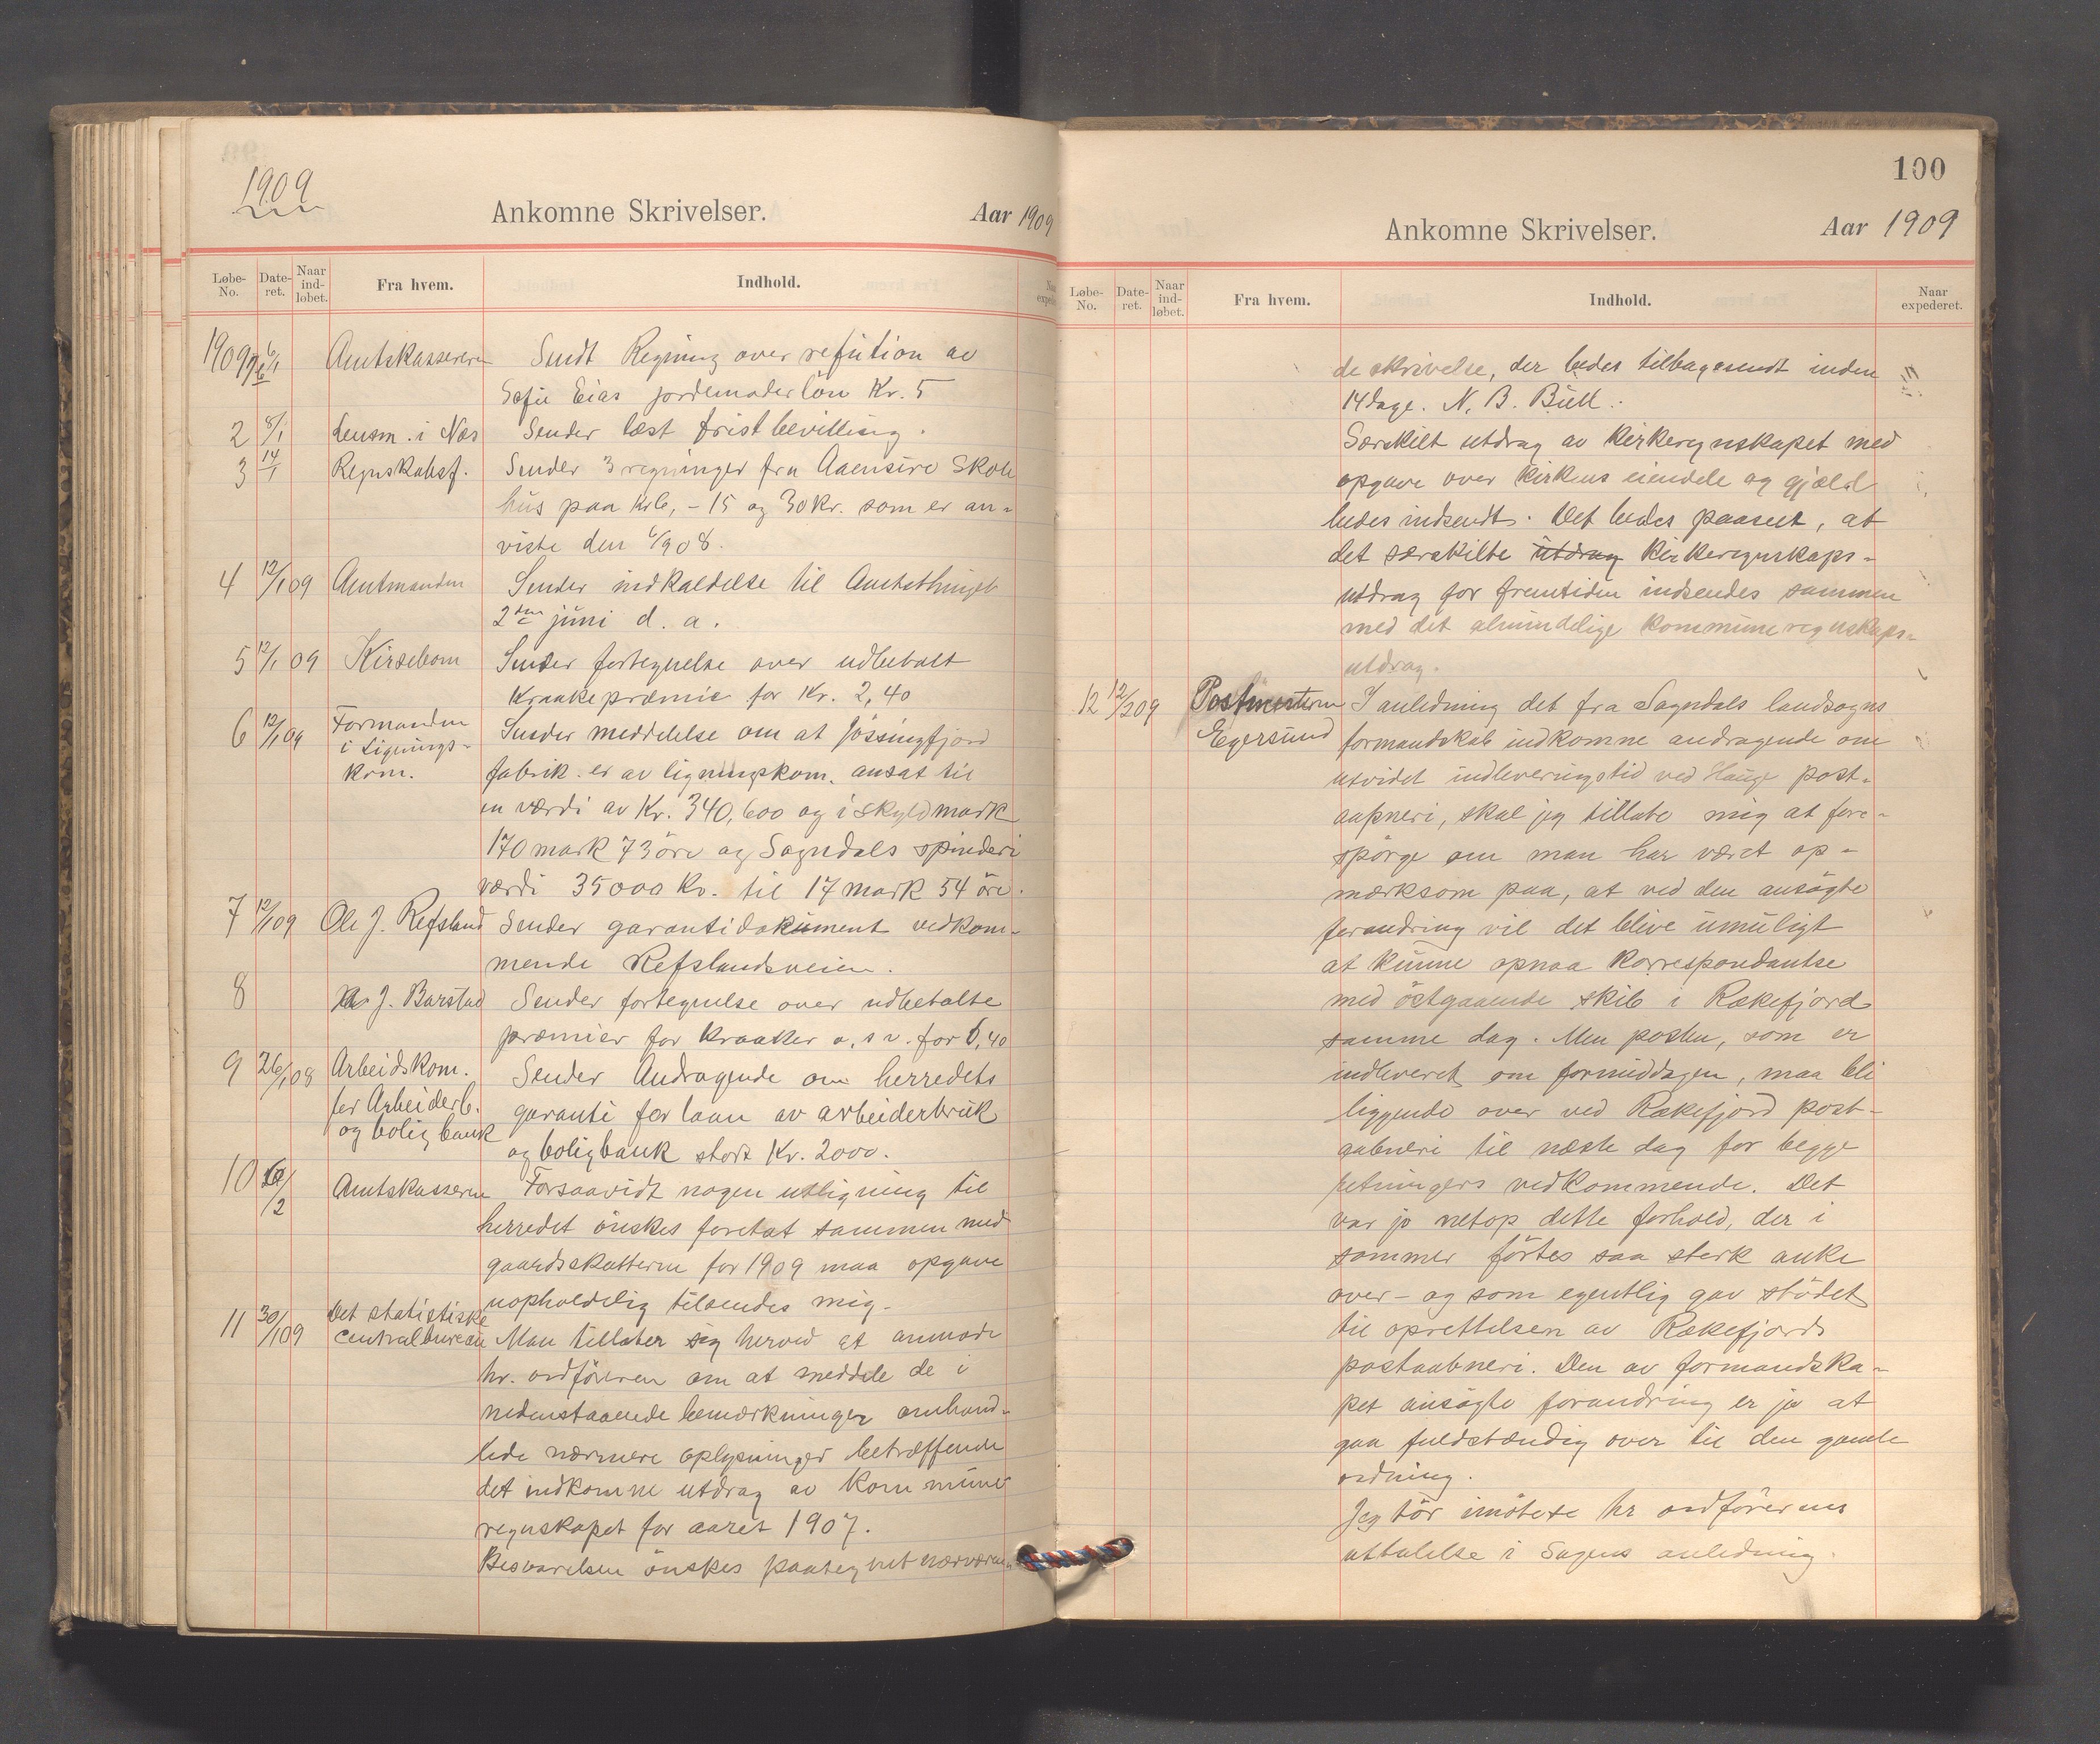 1909
Ankomne Skrivelser. Aar 1909
Løbe-No. Date-ret. Naar ind-løbet. Fra hvem. Indhold.
1909 6/1 Amtskassereren Sendt Regning over refution av
Sofie Eias jordemoderlön Kr. 5
2 8/1 Lensm. i Næs Sender læst fristbevilling.
3 14/1 Regnskabsf. Sender 3 regninger fra Aaensire Skole
hus paa Kr 6, - 15 og 30 Kr. som er an-
viste den 6/9 08.
4 12/1 09 Amtmanden Sender indkaldelse til Amtsthinget
2den juni d. a.
5 12/1 09 Kirsebom Sender fortegnelse over udbetalt
Kraakepræmie for Kr. 2,40
6 12/1 09 Formanden i Lignings-kom. Sender meddelelse om at Jössingfjord
fabrik. er av ligningskom. ansat til
en værdi av Kr. 340,600 og i skyldmark
170 mark 73 öre og Sogndals spinderi
værdi 35000 Kr. til 17 mark 54 öre.
7 12/1 09 Ole J. Refsland Sender garantidokument vedkom-
mende Refslandsveien.
8 J. Barstad Sender fortegnelse over udbetalte
præmier for kraaker o, s v. for 6,40
9 26/1 08 Arbeidskom. for Arbeiderb. og boligbank Sender Andragende om herredets
garanti for laan av arbeiderbruk
og boligbank stort Kr. 2000.
10 /2 Amtskasseren Forsaavidt nogen utligning til
herredet önskes foretat sammen med
gaardsskatterne for 1909 maa opgave
uopholdelig tilsendes mig.
11 30/1 09 Det statistiske centralbureau Man tillater sig herved at anmode
hr. ordföreren om at meddele de i
nedenstaaende bemærkninger omhand-
lede nærmere oplysninger betræffende
det indkomne utdrag av kommune
regnskapet for aaret 1907.
Besvarelsen önskes paategnet nærværen-
100
Ankomne Skrivelser. Aar 1909
Løbe-No. Date-ret. Naar ind-løbet. Fra hvem. Indhold. Naar expederet.
de skrivelse, der bedes tilbagesendt inden
14 dage. N. B. Bull.
Særskilt utdrag av kirkeregnskapet med
opgave over kirkens eiendele og gjæld
bedes indsendt. Det bedes paaseet, at
det særskilte utdrag kirkeregnskaps-
utdrag for fremtiden indsendes sammen
med det almindelige kommuneregnskaps-
utdrag.
12 12/2 09 Postmesteren Egersund I anledning det fra Sogndals landsogns
formandskab indkomne andragende om
utvidet indleveringstid ved Hauge post-
aapneri, skal jeg tillate mig at fore-
spörge om man har været op-
mærksom paa, at ved den ansögte
forandring vil det blive umuligt
at kunne opnaa korrespondantse
med östgaaende skib i Rækefjord
samme dag. Men posten, som er
indleveret om formiddagen, maa bli
liggende over ved Rækefjord post-
aabneri til næste dag for begge
retningers vedkommende. Det
var jo netop dette forhold, der i
sommer förtes saa sterk anke
over - og som egentlig gav stödet
til oprettelsen av Rækefjords
postaabneri. Den av formandska-
pet ansögte forandring er jo at
gaa fuldstændig over til den gamle
ordning.
Jeg tör imötese hr ordförerens
uttalelse i Sagens anledning.